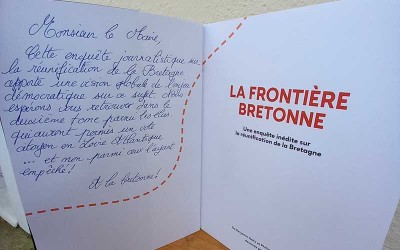 Monsieur le Maire,
Cette enquête journalistique sur
la réunification de la Bretagne
apporte une vision globale de l'enjeu
démocratique sur ce sujet. Nous
espérons vous retrouver dans le
deuxième tome parmi les élus
qui auront permis un vote
citoyen en Loire Atlantique
... et non parmi ceux l'ayant
empêché!
A la bretonne!
LA FRONTIÈRE
BRETONNE
Une enquête inédite sur
la réunification de la Bretagne